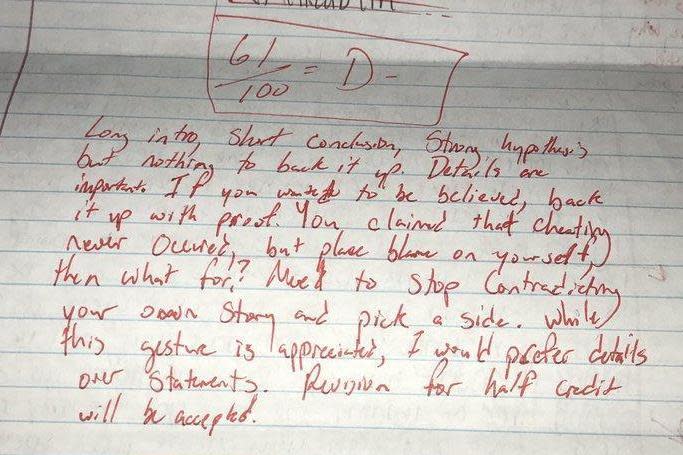 61
100 = D-
Long intro, Short Conclusion, Strong hypothesis
but nothing to back it up. Details are
important. If you want to be believed, back
it up with proof. You claimed that cheating
never occured, but place blame on yourself,
then what for? Need to Stop Contradicting
your own Story and pick a side. While
this gesture is appreciated, I would prefer details
over Statements. Revision for half credit
will be accepted.